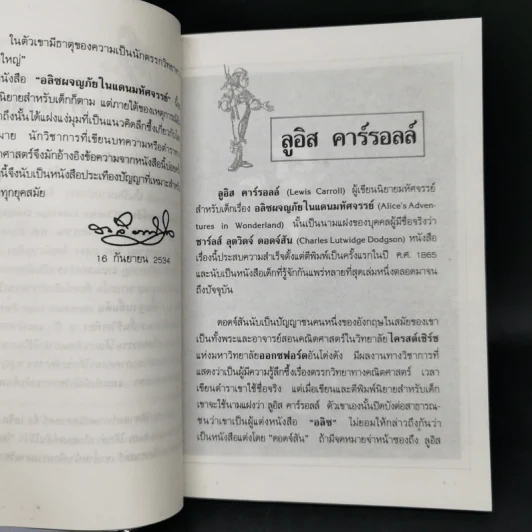 ในตัวเขามีธาตุของความเป็นนักตรรกวิทยา
ใหญ่"
หนังสือ "อลิซผจญภัยในแดนมหัศจรรย์"
นิยายสำหรับเด็กก็ตาม แต่ภายใต้ของเหตุการณ์
ถึงนั้นได้แฝงแง่มุมที่เป็นแนวคิดลึกซึ้งเกี่ยวกับ
นักวิชาการที่เขียนบทความหรือตำรา
ศาสตร์จึงมักอ้างอิงข้อความจากหนังสือนี้
นี้จึงนับเป็นหนังสือประเทืองปัญญาที่เหมาะสำหรับ
ทุกยุคสมัย
16 กันยายน 2534
ลูอิส คาร์รอลล์
ลูอิส คาร์รอลล์ (Lewis Carroll) ผู้เขียนนิยายมหัศจรรย์
สำหรับเด็กเรื่อง อลิซผจญภัยในแดนมหัศจรรย์ (Alice's Adven-
tures in Wonderland) นั้นเป็นนามแฝงของบุคคลผู้มีชื่อจริงว่า
ชาร์ลส์ ลุตวิดจ์ ดอดจ์สัน (Charles Lutwidge Dodgson) หนังสือ
เรื่องนี้ประสบความสำเร็จตั้งแต่ตีพิมพ์เป็นครั้งแรกในปี ค.ศ. 1865
และนับเป็นหนังสือเด็กที่รู้จักกันแพร่หลายที่สุดเล่มหนึ่งตลอดมาจน
ถึงปัจจุบัน
ดอดจ์สันนับเป็นปัญญาชนคนหนึ่งของอังกฤษในสมัยของเขา
เป็นทั้งพระและอาจารย์สอนคณิตศาสตร์ในวิทยาลัยไครสต์เชิร์ช
แห่งมหาวิทยาลัยออกซฟอร์ดอันโด่งดัง มีผลงานทางวิชาการที่
แสดงว่าเป็นผู้มีความรู้ลึกซึ้งเรื่องตรรกวิทยาทางคณิตศาสตร์ เวลา
เขียนตำราเขาใช้ชื่อจริง แต่เมื่อเขียนและตีพิมพ์นิยายสำหรับเด็ก
เขาจะใช้นามแฝงว่า ลูอิส คาร์รอลล์ ตัวเขาเองนั้นปิดบังต่อสาธารณ-
ชนว่าเขาเป็นผู้แต่งหนังสือ "อลิซ" ไม่ยอมให้กล่าวถึงกันว่า
เป็นหนังสือแต่งโดย "ดอดจ์สัน" ถ้ามีจดหมายจ่าหน้าซองถึง ลูอิส